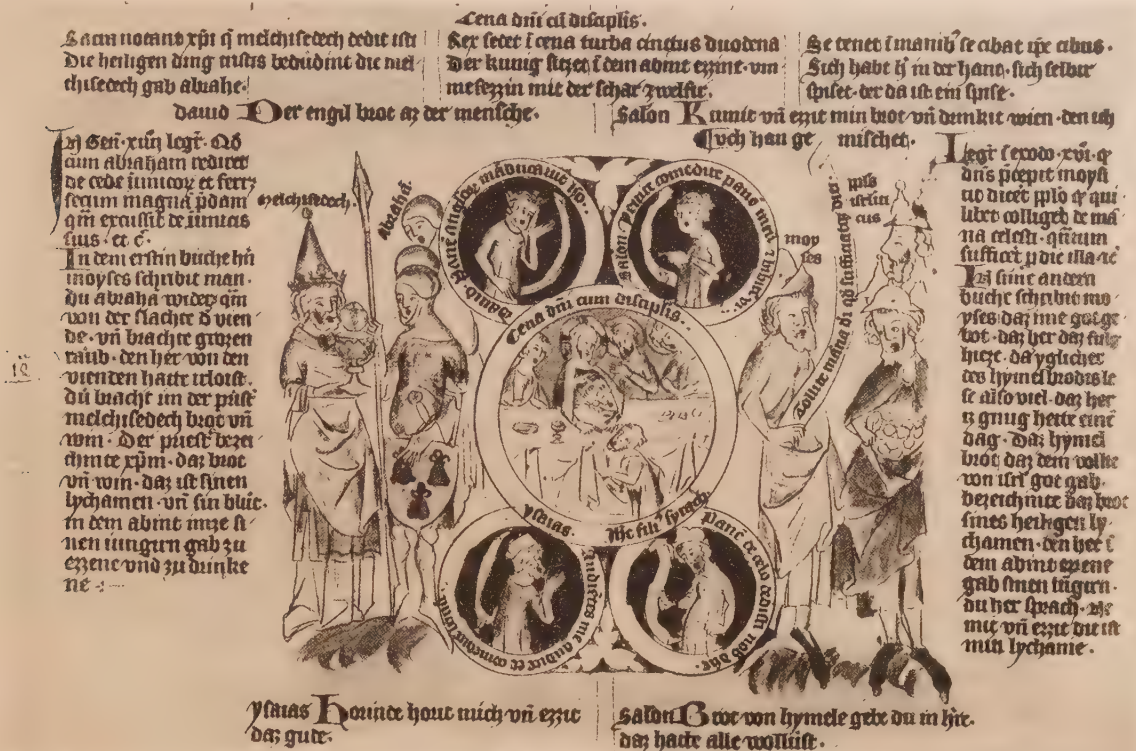 Cena dn̄i cū discipl̄is.
Sacra notano xp̄i q̄ melchisedech dedit isti
Die heiligen ding cristis bedūdint die mel-
chisedech gab abrahe.
Rex sedet ī cena turba cinctus duodena
Der kunig sitzet ī dem abint ezzine. vn
mesezzin mit der schar zwelfir.
Se tenet ī manib' se cibat ip̄e cibus.
Sich habt h̄ in der hant. sich selbir
spiset. der da ist ein spise.
dauid Der engil brot az der mensche.
Salon Kumit vn̄ ezzit min brot vn̄ drinkit wien. den ich
ūch han ge mischet.
In Gen̄. xiiij legit̄. Qd
cum abraham rediret
de cede īimicoꝝ et ferrꝫ
secum magnā p̄dam
qm̄ excussit de īimicis
suis. et c̄.
In dem erstin buche h̄n
moyses schribit man.
du abrahā widerꝫ qm̄
von der slachte d̄ vien
de. vn̄ brachte grozen
raub. den her von den
vienden hatte irlost.
dū bracht im der p̄ist̄
melchisedech brot vn̄
win. Der priest̄ bezei-
chinte xp̄m. daz brot
vn̄ win. daz ist sinen
lychamen. vn̄ sin blūt.
in dem abint imze si-
nen iungirn gab zu
ezzene vnd zu drinke
ne
melchisedech.
Abrahā.
Dauid. Panē angloꝝ māducauit hō.
Salon. Venite comedite panē meū ⁊ bibite vi.
Cena dn̄i cum discipl̄is.
moy
ses
Colligite māna
ysaias.
Audiētes me audite et comedite bonū.
Jhc fili' syrach.
Panē de celo dedisti nob̄ dn̄e.
Legit̄ ī exodo. xvi. q̄
dn̄s p̄cepit moysi
ut dicet p̄plo q̄ qui
libet colligeb̄ de mā
na celesti. q̄ntum
sufficet p̄ die illa ⁊c̄
In sime andern
buche schribit mo
yses. daz ime got ge
bot. daz her daz fulg
hieze. da yglicher
des hymel brodis le
se also viel. daz her
ꝫ gnug hette einē
dag. Daz hymel
brot daz dem volke
von isrl̄ got gab.
bezeichinte daz brot
sines heiligen ly
chamen. den her ī
dem abint ezene
gab sinen iūgirn.
du her sprach. Ne
mit vn̄ ezzit diz ist
min lychame.
ysaias Horinde horit mich vn̄ ezzit
daz gude.
Salon Brot von hymele gebe du in h̄re.
daz hatte alle wollust.